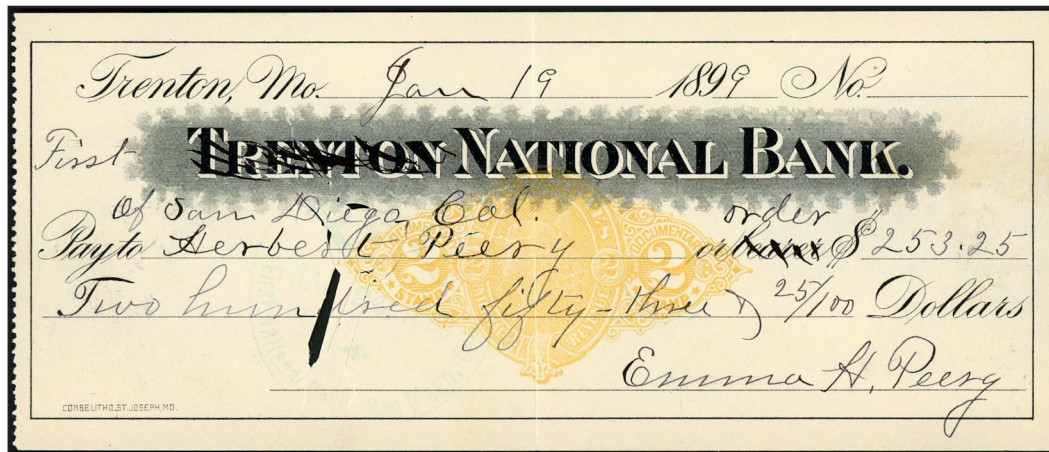 Trenton, Mo. Jan 19 1899 No.
First TRENTON NATIONAL BANK.
Of San Diego Cal. order
Pay to Herbert Peery or bearer $ 253.25
2 DOCUMENTARY 2
Two hundred fifty-three & 25/100 Dollars
Emma H. Peery
COMBE LITHO. ST. JOSEPH, MO.